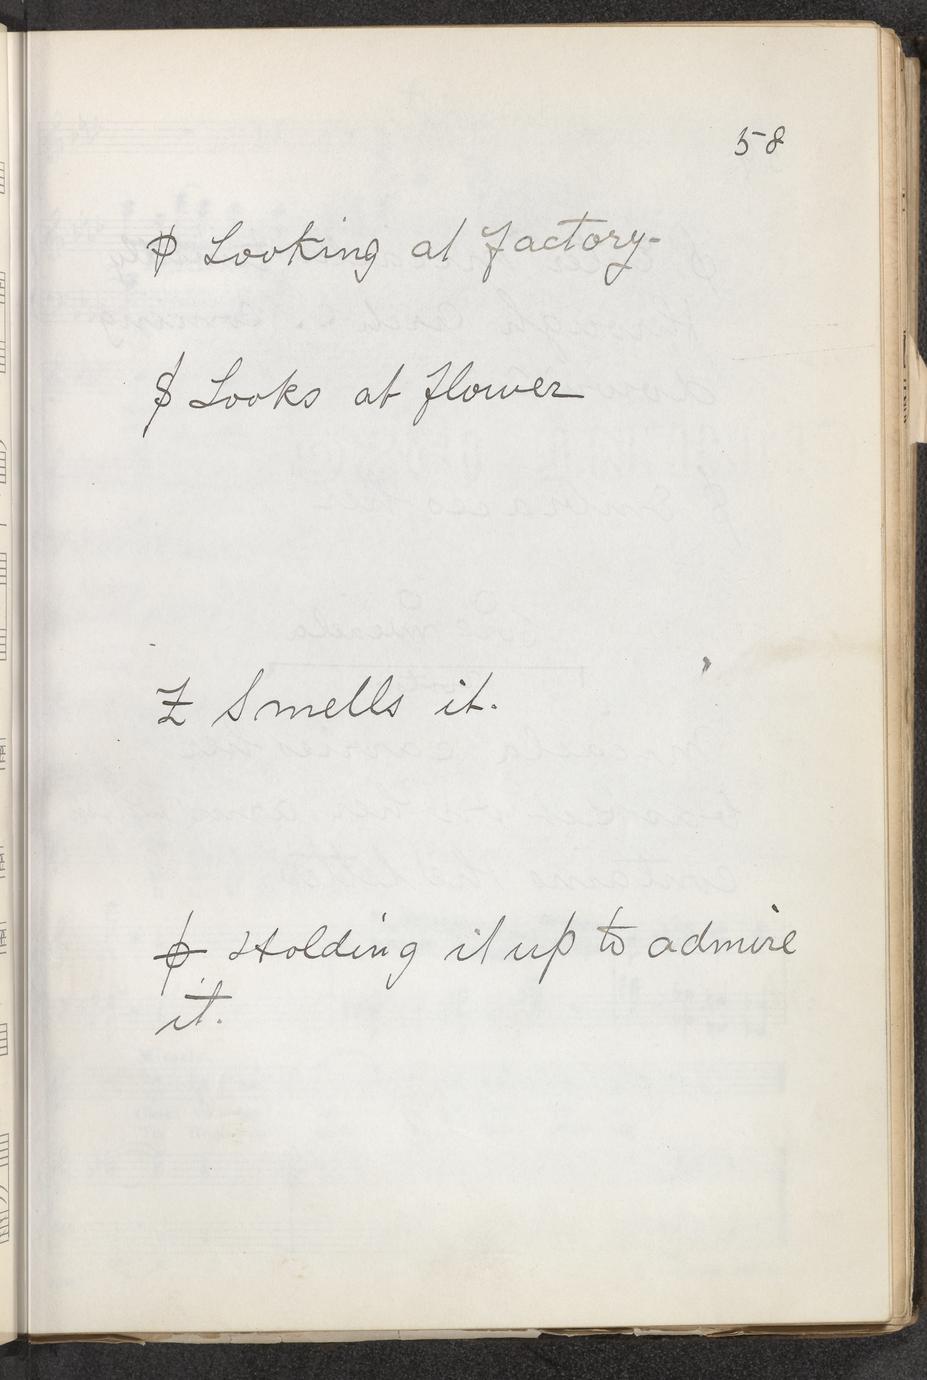 58
Looking at factory-
$ Looks at flower
Z Smells it.
Holding it up to admire
it.